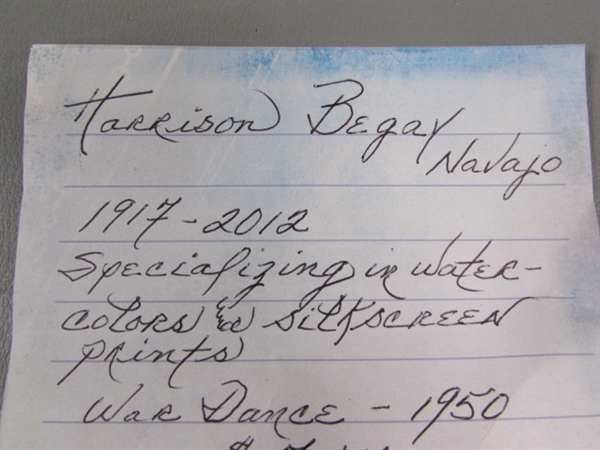 Harrison Begay
Navajo
1917-2012
Specializing in water-
colors & silkscreen
prints
War Dance - 1950